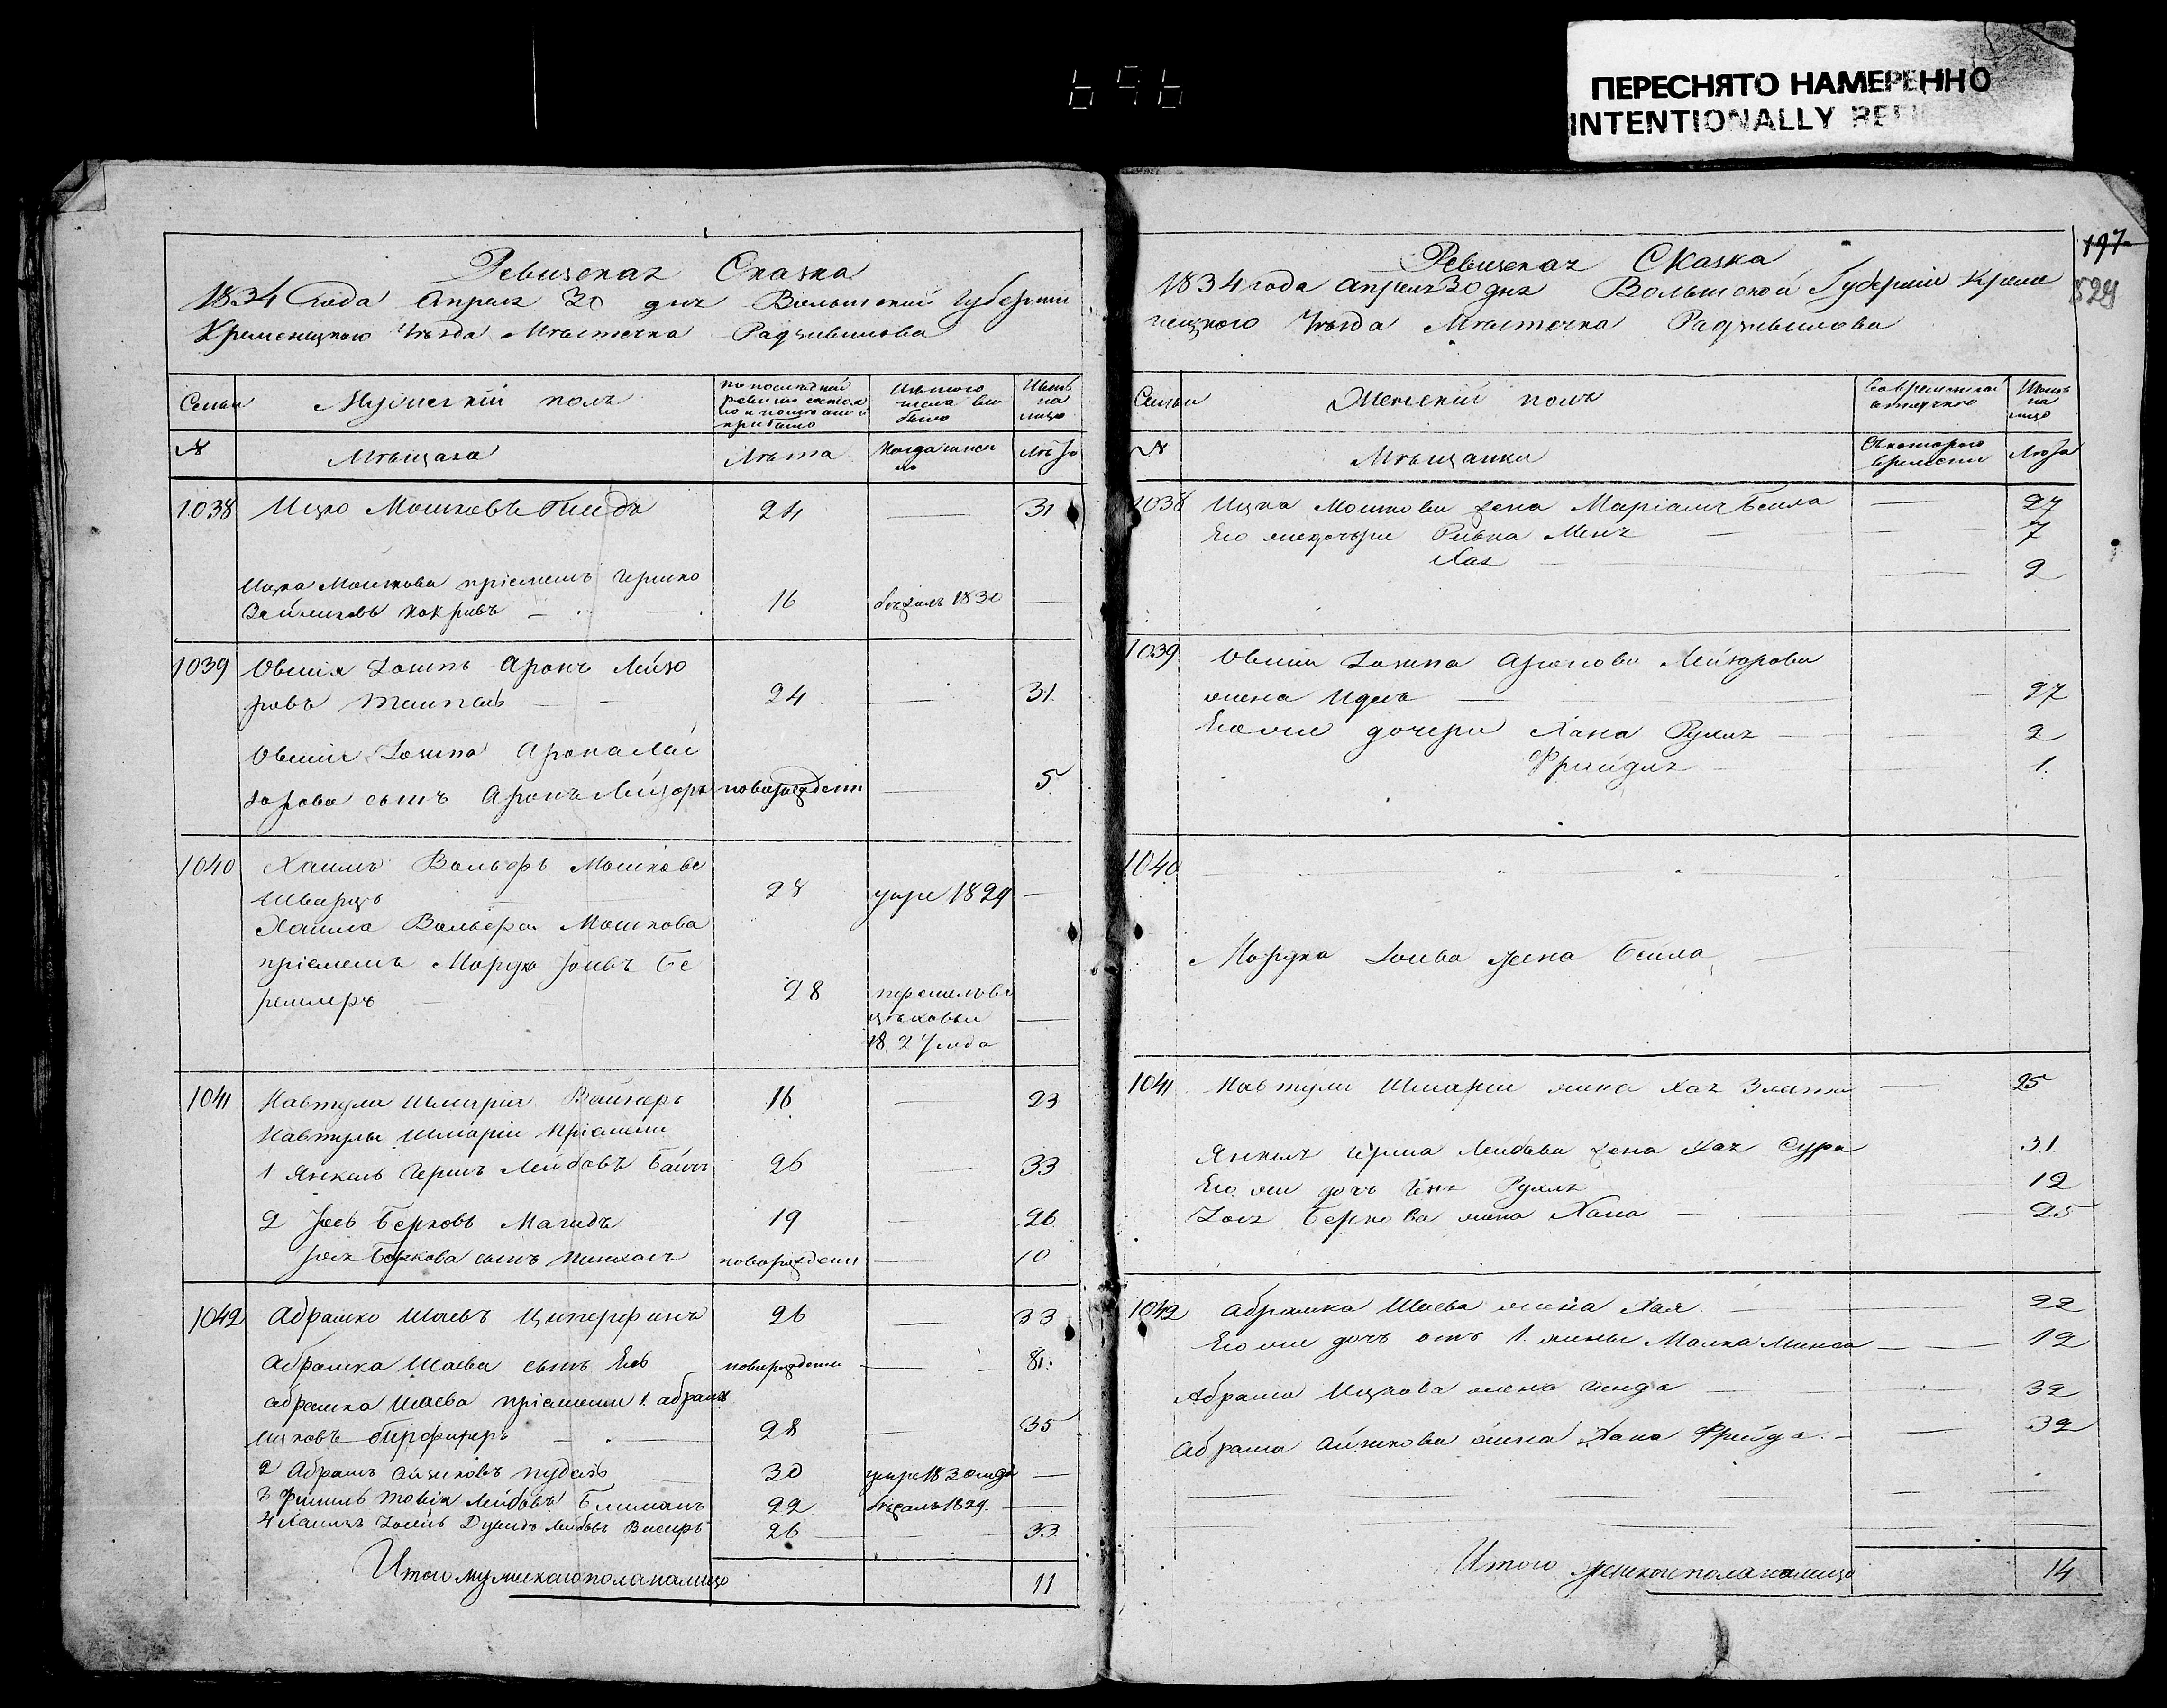 696
ПЕРЕСНЯТО НАМЕРЕННО
INTENTIONALLY
Ревизская Сказка
1834 года Апреля 30 дня Волынской Губернии
Кременецкого Уѣзда Мѣстечка Радзивилова
Семьи
Мужескій полъ
По послѣдней ревизіи состояло и послѣ оной прибыло
Изъ того числа выбыло
Нынѣ на лицо
№
Мѣщане
Лѣта
Когда именно
Лѣта
1038 Ицко Мошковъ 24 — 31
Ицка Мошкова пріемышъ Гершко
Зейликовъ 16 бѣжалъ 1830 —
1039 Овшія Іосипъ Аронъ Лейзо
ровъ 24 — 31
Овшія Іосипа Арона Лей
зорова сынъ Аронъ Лейзоръ новорожденн — 5
1040 Хаимъ Вольфъ Мошковъ
Шварцъ 28 умре 1829 —
Хаима Вольфа Мошкова
пріемышъ Мордко Іоивъ Бе
28 перешелъ въ
цѣховые —
1827 года
1041 Навтула Шмарія 16 — 23
Навтулы Шмаріи Пріемыши
1 Янкель Гершъ Лейбовъ 26 — 33
2 Іось Берковъ Магидъ 19 — 26
Іося Беркова сынъ Пинхасъ новорожденн — 10
1042 Абрамко Шаевъ 26 — 33
Абрамка Шаева сынъ новорожденн — 8
Абрамка Шаева пріемыши 1. Абрамъ
Ицковъ 28 — 35
2 Абрамъ Айзиковъ Пудель 30 умре 1830 года —
3 Товія Лейбовъ 22 бѣжалъ 1829. —
4 Хаимъ Лейбовъ 26 — 33
Итого мужескаго пола на лицо 11
197
529
Ревизская Сказка
1834 года Апреля 30 дня Волынской Губерніи Креме
нецкого Уѣзда Мѣстечка Радзивилова
Семьи
Женскій полъ
Во временной отлучкѣ
Нынѣ на лицо
№
Мѣщанки
Съ котораго времени
Лѣта
1038 Ицка Мошкова жена Маріамъ Бейла — 27
Его же дочери Ривка — 7
Хая — 2
1039 Овшіи Іосипа Аронова Лейзорова
жена — 27
Его же дочери Хана Рухля — 2
Фрейдля — 1
1040 —
Мордка Іоива жена Бейла —
1041 Навтули Шмаріи жена Хая Злата — 25
Янкеля Герша Лейбова жена Хая Сура 31
Его же дочь Рухля 12
Іося Беркова жена Хана — 25
1042 Абрамка Шаева жена Хая — 22
Его же дочь отъ 1. жены Малка — 12
Абрама Ицкова жена — 32
Абрама Айзикова жена Хана Фрейда — 32
Итого женского пола на лицо 14